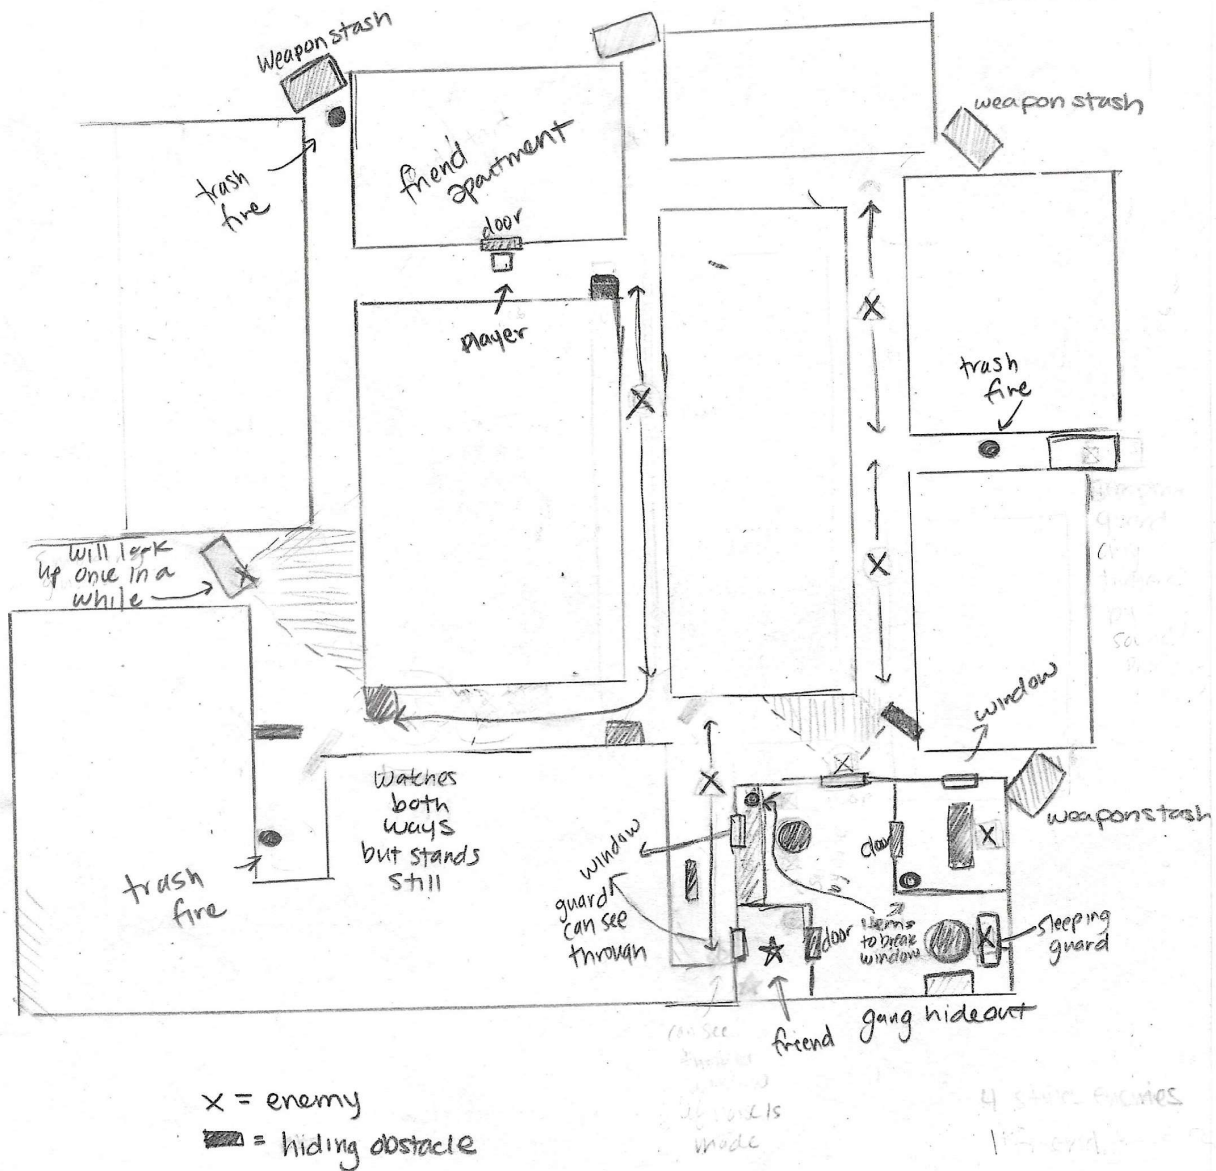 Weapon stash
weapon stash
trash
fire
friend
apartment
door
Player
trash
fire
will look
up once in a
while
window
Watches
both
ways
but stands
still
trash
fire
window
guard
can see
through
door
weapon stash
door
items
to break
window
sleeping
guard
friend
gang hideout
can see
made
X = enemy
= hiding obstacle